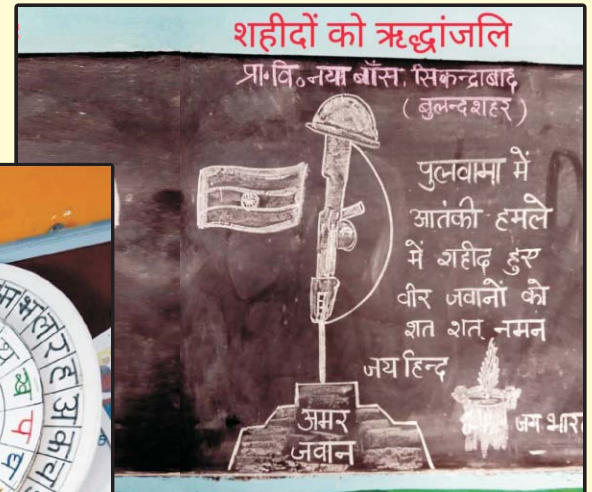 शहीदों को ऋद्धांजलि
प्रा॰वि॰नया बाँस, सिकन्द्राबाद
(बुलन्दशहर)
पुलवामा में
आतंकी हमले
में शहीद हुए
वीर जवानों को
शत शत् नमन
जय हिन्द
जय भार
अमर
जवान
म भ ल र ह अ क च
थ ख प घ